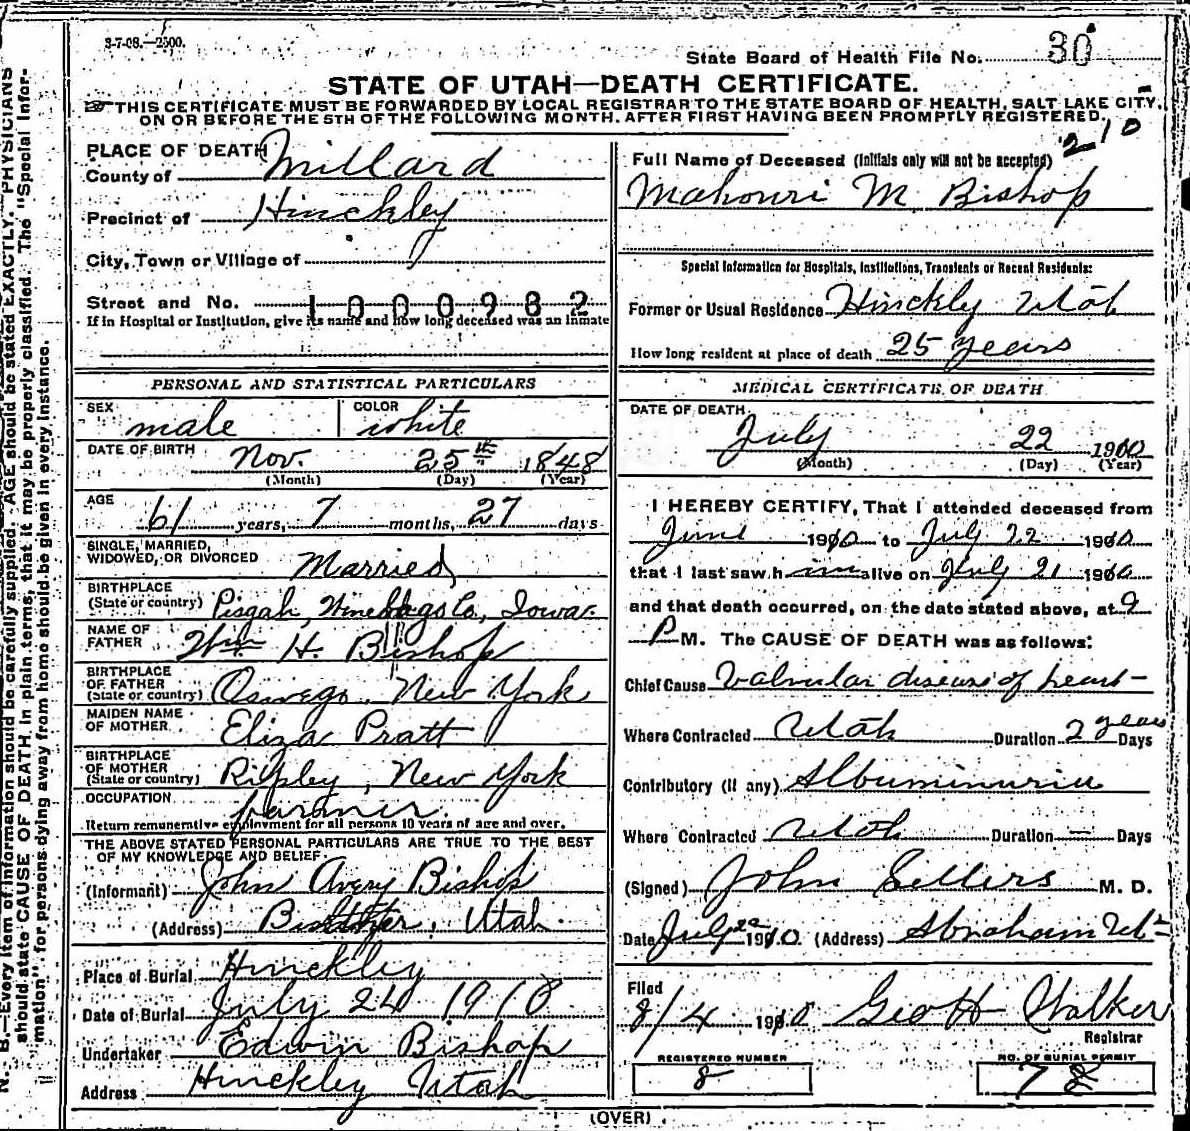 3-7-08.—2500.
State Board of Health File No. 30
STATE OF UTAH—DEATH CERTIFICATE.
THIS CERTIFICATE MUST BE FORWARDED BY LOCAL REGISTRAR TO THE STATE BOARD OF HEALTH, SALT LAKE CITY,
ON OR BEFORE THE 5TH OF THE FOLLOWING MONTH. AFTER FIRST HAVING BEEN PROMPTLY REGISTERED.
210
PLACE OF DEATH
County of Millard
Precinct of Hinckley
City, Town or Village of
Street and No. 1000982
If in Hospital or Institution, give its name and how long deceased was an inmate
Full Name of Deceased (Initials only will not be accepted)
Mahonri M Bishop
Special Information for Hospitals, Institutions, Transients or Recent Residents:
Former or Usual Residence Hinckly Utah
How long resident at place of death 25 years
PERSONAL AND STATISTICAL PARTICULARS
SEX male COLOR white
DATE OF BIRTH Nov. 25th 1848
(Month) (Day) (Year)
AGE 61 years, 7 months, 27 days
SINGLE, MARRIED,
WIDOWED, OR DIVORCED Married
BIRTHPLACE
(State or country) Pisgah, Co., Iowa.
NAME OF
FATHER Wm H. Bishop
BIRTHPLACE
OF FATHER
(State or country) Oswego, New York
MAIDEN NAME
OF MOTHER Eliza Pratt
BIRTHPLACE
OF MOTHER
(State or country) Ripley, New York
OCCUPATION farmer.
Return remunerative employment for all persons 10 years of age and over.
THE ABOVE STATED PERSONAL PARTICULARS ARE TRUE TO THE BEST
OF MY KNOWLEDGE AND BELIEF.
(Informant) John Avery Bishop
(Address) Utah.
Place of Burial Hinckley
Date of Burial July 24 1910
Undertaker Edwin Bishop
Address Hinckley Utah
MEDICAL CERTIFICATE OF DEATH
DATE OF DEATH
July 22 1910
(Month) (Day) (Year)
I HEREBY CERTIFY, That I attended deceased from
June 1910 to July 22 1910
that I last saw him alive on July 21 1910
and that death occurred, on the date stated above, at 9
P M. The CAUSE OF DEATH was as follows:
Chief Cause Valvular disease of heart-
Where Contracted Utah Duration 2 years Days
Contributory (if any) Albuminuria
Where Contracted Utah Duration — Days
(Signed) John Sellers M. D.
Date July 22 1910 (Address) Abraham Ut-
Filed
8/4 1910 Geo H Walker
Registrar
REGISTERED NUMBER
8
NO. OF BURIAL PERMIT
78
(OVER)
N. B.—Every item of information should be carefully supplied. AGE should be stated EXACTLY. PHYSICIANS
should state CAUSE OF DEATH in plain terms, that it may be properly classified. The "Special Infor-
mation" for persons dying away from home should be given in every instance.